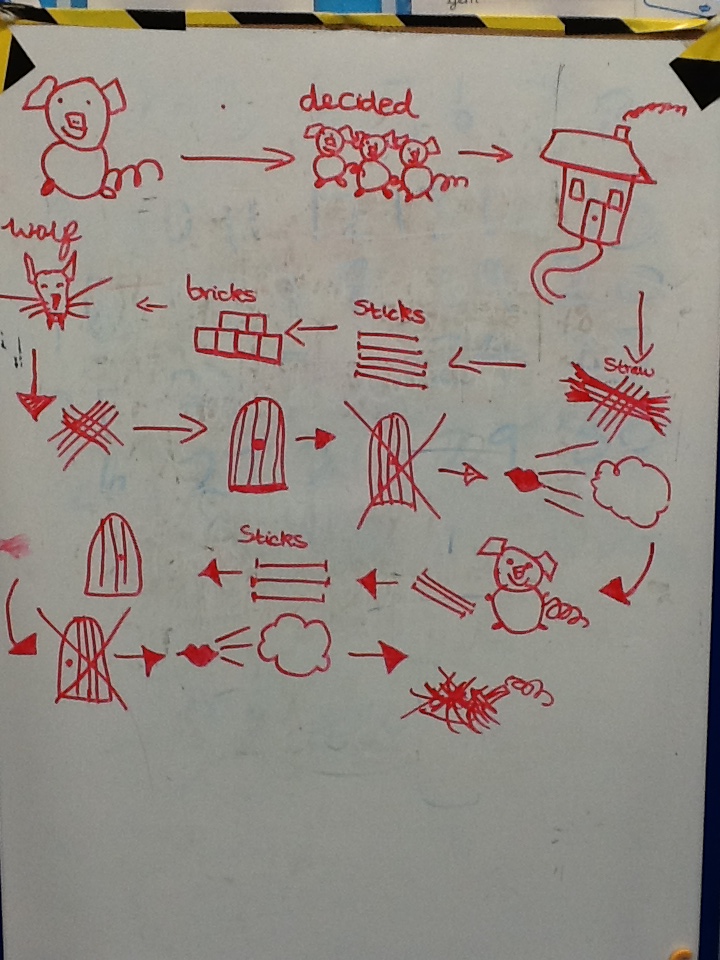 decided
wolf
bricks
Sticks
Straw
Sticks